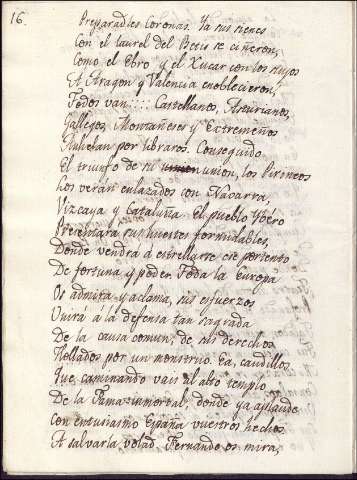 16.
Preparadles coronas. Ya sus sienes
Con el laurel del Betis se ciñeron,
Como el Ebro y el Xucar con los suyos
A Aragon y Valencia enoblecieron,
Todos van::::: Castellanos, Asturianos,
Gallegos, Montañeses y Extremeños
Anhelan por libraros. Conseguido
El triunfo de su union, los Pirineos
Los verán enlazados con Navarra,
Vizcaya y Cataluña. El pueblo Ybero
Presentará sus huestes formidables,
Donde vendrá á estrellarse ese portento
De fortuna y poder. Toda la Europa
Os admira y aclama, sus esfuerzos
Unirá á la defensa tan sagrada
De la causa comun, de sus derechos
Hollados por un monstruo. Ea, caudillos,
Que caminando vais al alto templo
De la Fama inmortal, donde ya aplaude
Con entusiasmo España vuestros hechos
A salvarla volad. Fernando os mira,